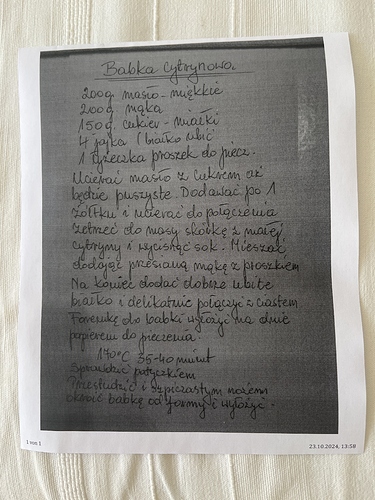 Babka cytrynowa
200g. masło - miękkie
200g. mąka
150g. cukier - miałki
4 jajka (białko ubić
1 łyżeczka proszek do piecz.
Ucierać masło z cukrem aż
będzie puszyste. Dodawać po 1
żółtku i ucierać do połączenia
zetrzeć do masy skórkę z małej
cytryny i wycisnąć sok. Mieszać
dodając przesianą mąkę z proszkiem
Na koniec dodać dobrze ubite
białko i delikatnie połączyć z ciastem
Foremkę do babki wyłożyć na dnie
papierem do pieczenia.
170°C 35-40 minut
Sprawdzić patyczkiem
Przestudzić i szpiczastym nożem
obrobić babkę od formy i wyłożyć.
1 von 1
23.10.2024, 13:58